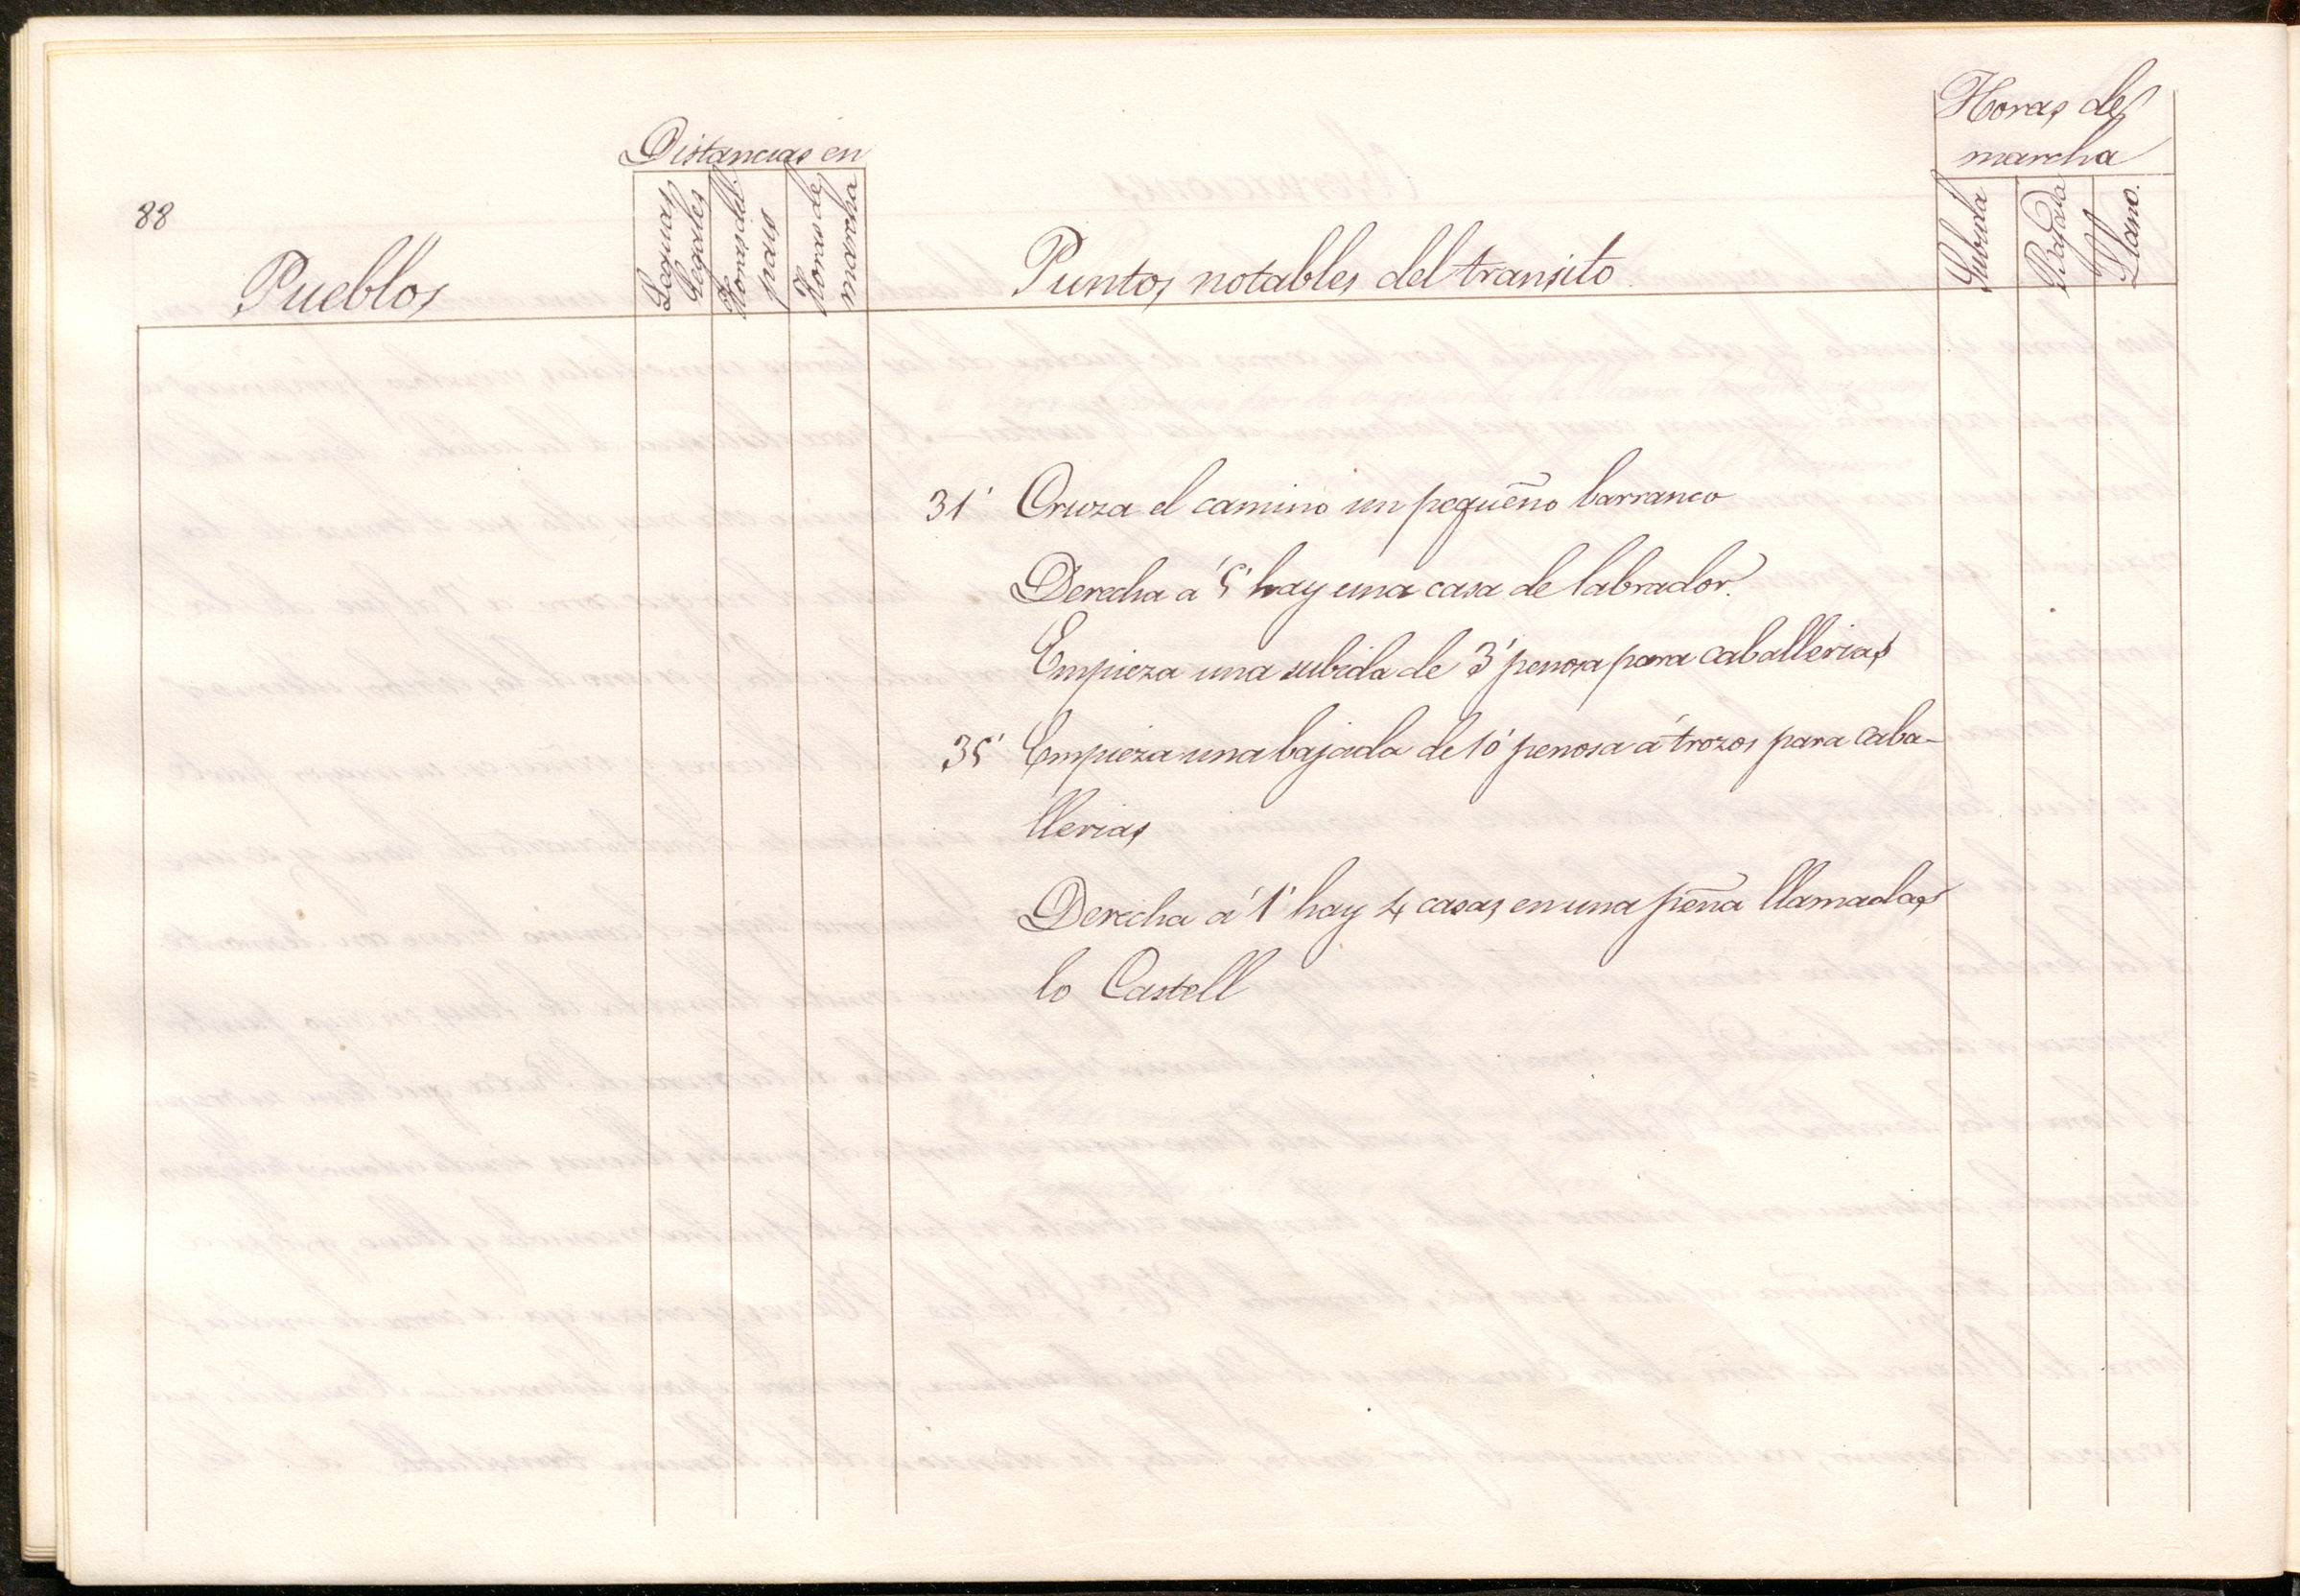 88
Pueblos
Distancias en
Leguas
Legales
Horas del
pais
Horas de
marcha
Puntos notables del transito
Horas de
marcha
Subida
Bajada
Llano.
31' Cruza el camino un pequeño barranco
Derecha á 5' hay una casa de labrador.
Empieza una subida de 3' penosa para caballerias
35' Empieza una bajada de 10' penosa á trozos para caba-
llerias
Derecha á 1' hay 4 casas en una peña llamadas
lo Castell